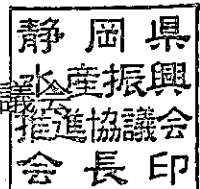 静岡県
水産振興
推進協議会
会長印
議会